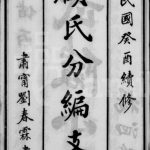 民國癸酉續修
氏分編支
肅寗劉春霖